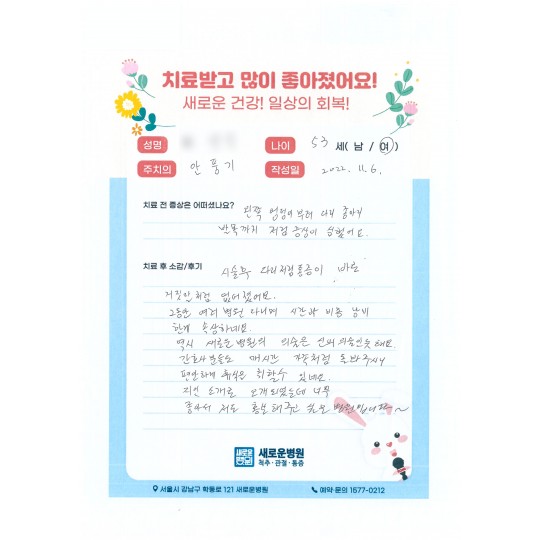 치료받고 많이 좋아졌어요!
새로운 건강! 일상의 회복!
성명 나이 53 세( 남 / 여 )
주치의 안풍기 작성일 2022. 11. 6.
치료 전 증상은 어떠셨나요? 왼쪽 엉덩이부터 다리 종아리
발목까지 저림 증상이 심했어요.
치료 후 소감/후기 시술후 다리저림통증이 바로
거짓말처럼 없어졌어요.
그동안 여러 병원 다니며 시간과 비용 낭비
한게 속상하네요.
역시 새로운병원의
간호사분들도 매시간 가족처럼 돌봐주셔서
편안하게 휴식을 취할수 있네요.
지인 소개로 오게되었는데 너무
좋아서 저도 홍보해주고 싶은 병원입니다~
새로운병원
척추·관절·통증
서울시 강남구 학동로 121 새로운병원 예약·문의 1577-0212